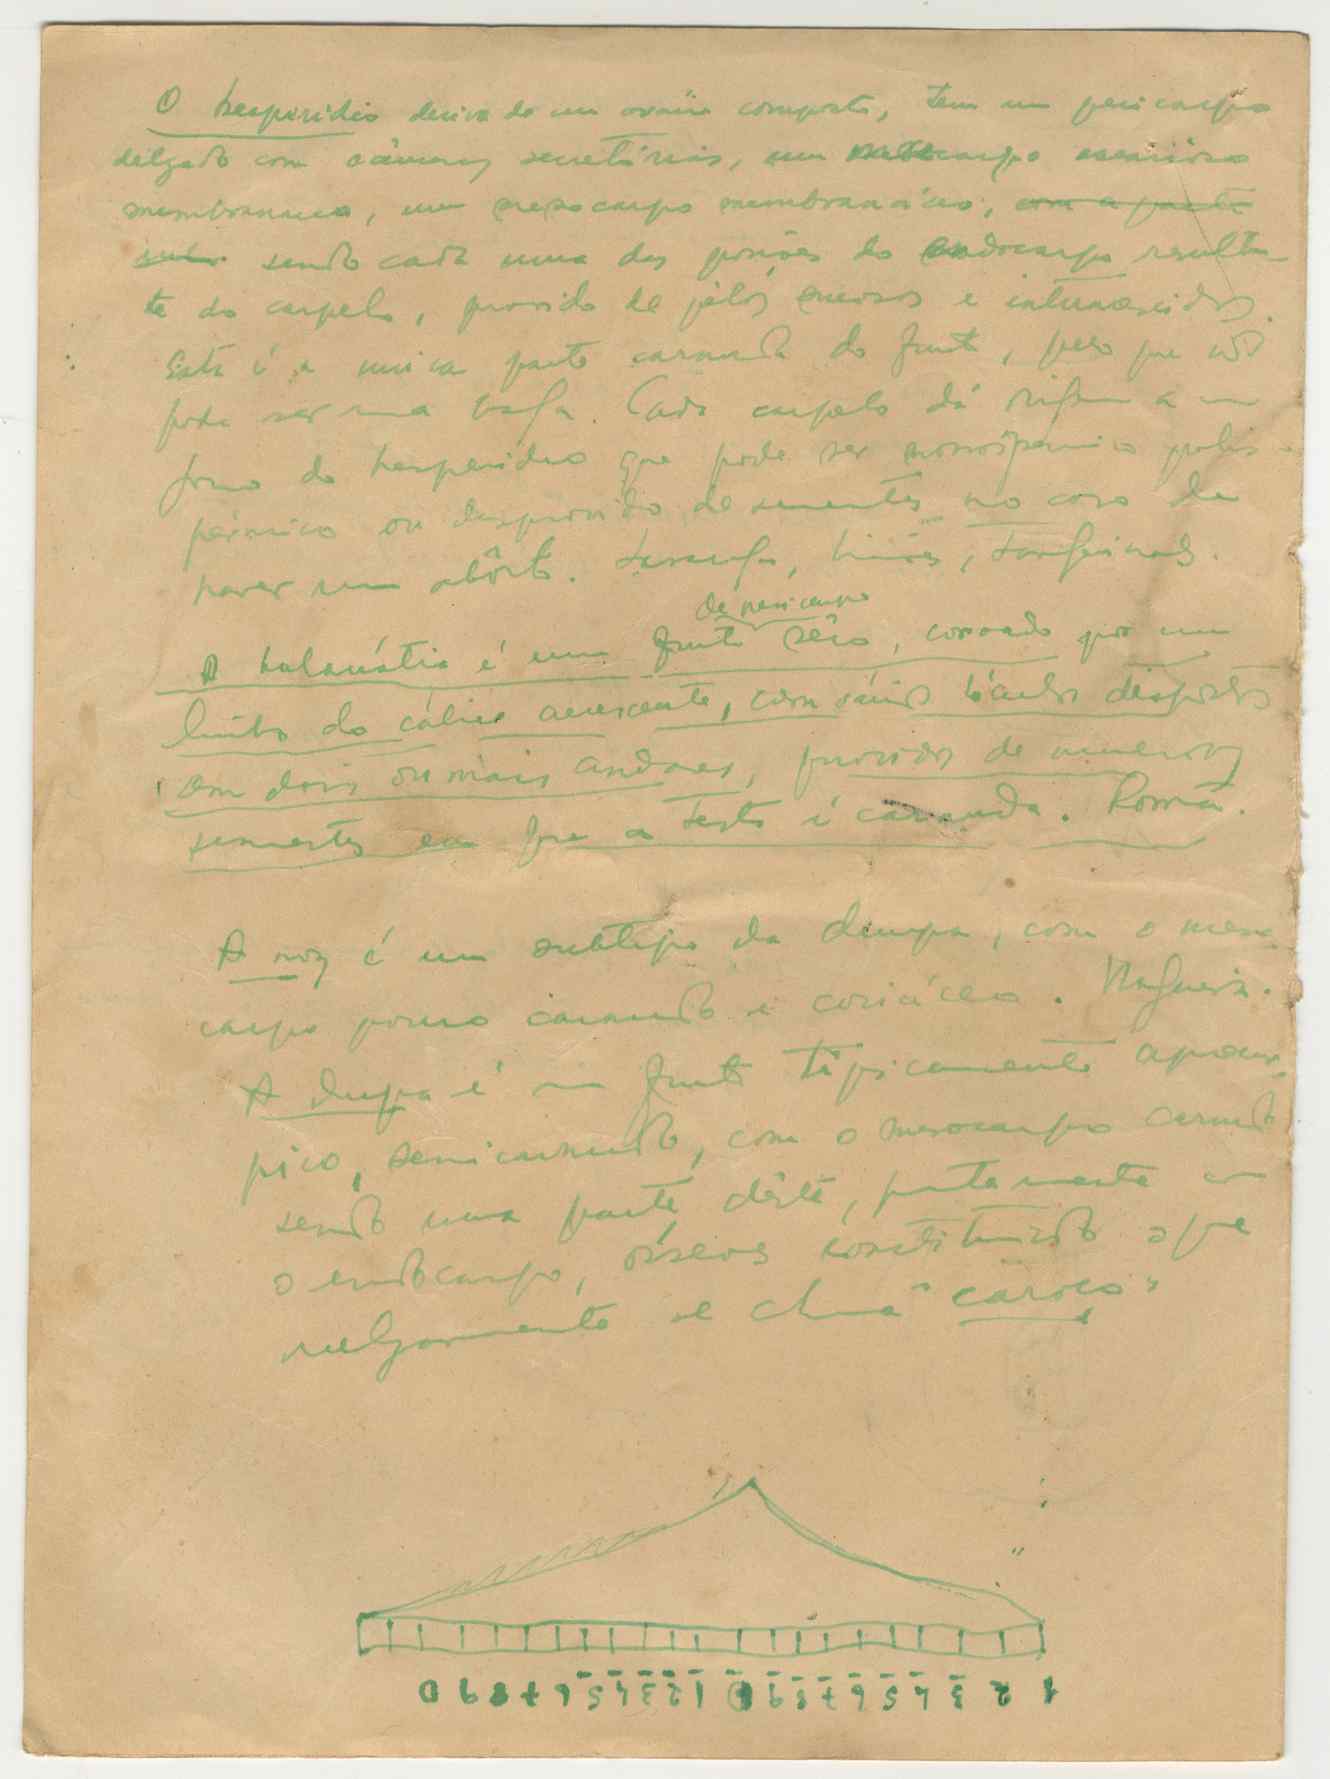 O hesperídio deriva do um ovário composto, tem um pericarpo
delgado com câmaras secretórias, um
membranaceo, um mesocarpo membranáceo, com a parte
sendo cada uma das porções do endocarpo resultan-
te do carpelo, provido de pêlos e intumescidos.
Esta é a unica parte carnuda do fruto, pelo que não
pode ser uma baga. Cada carpelo dá origem a um
gomo do hesperídeo que pode ser monospérmico polis-
pérmico ou desprovido de sementes no caso de
haver um abôrto. Laranja, limões, tangerinas.
de pericarpo
A balaústia é um fruto sêco, coroado por um
limbo do cálice acrescente, com vários lóculos dispostos
em dois ou mais andares, providos de numerosas
sementes em que a testa é carnuda. Romã.
A noz é um subtipo da drupa, com o meso-
carpo pouco carnudo e coriáceo. Nogueira.
A drupa é um fruto tipicamente apocar-
pico, semicarnudo, com o mesocarpo carnudo
sendo uma parte dêste, juntamente com
o endocarpo, ósseos constituindo o que
vulgarmente se chama "caroço"
0 9 8 7 6 5 4 3 2 1 0 9 8 7 6 5 4 3 2 1